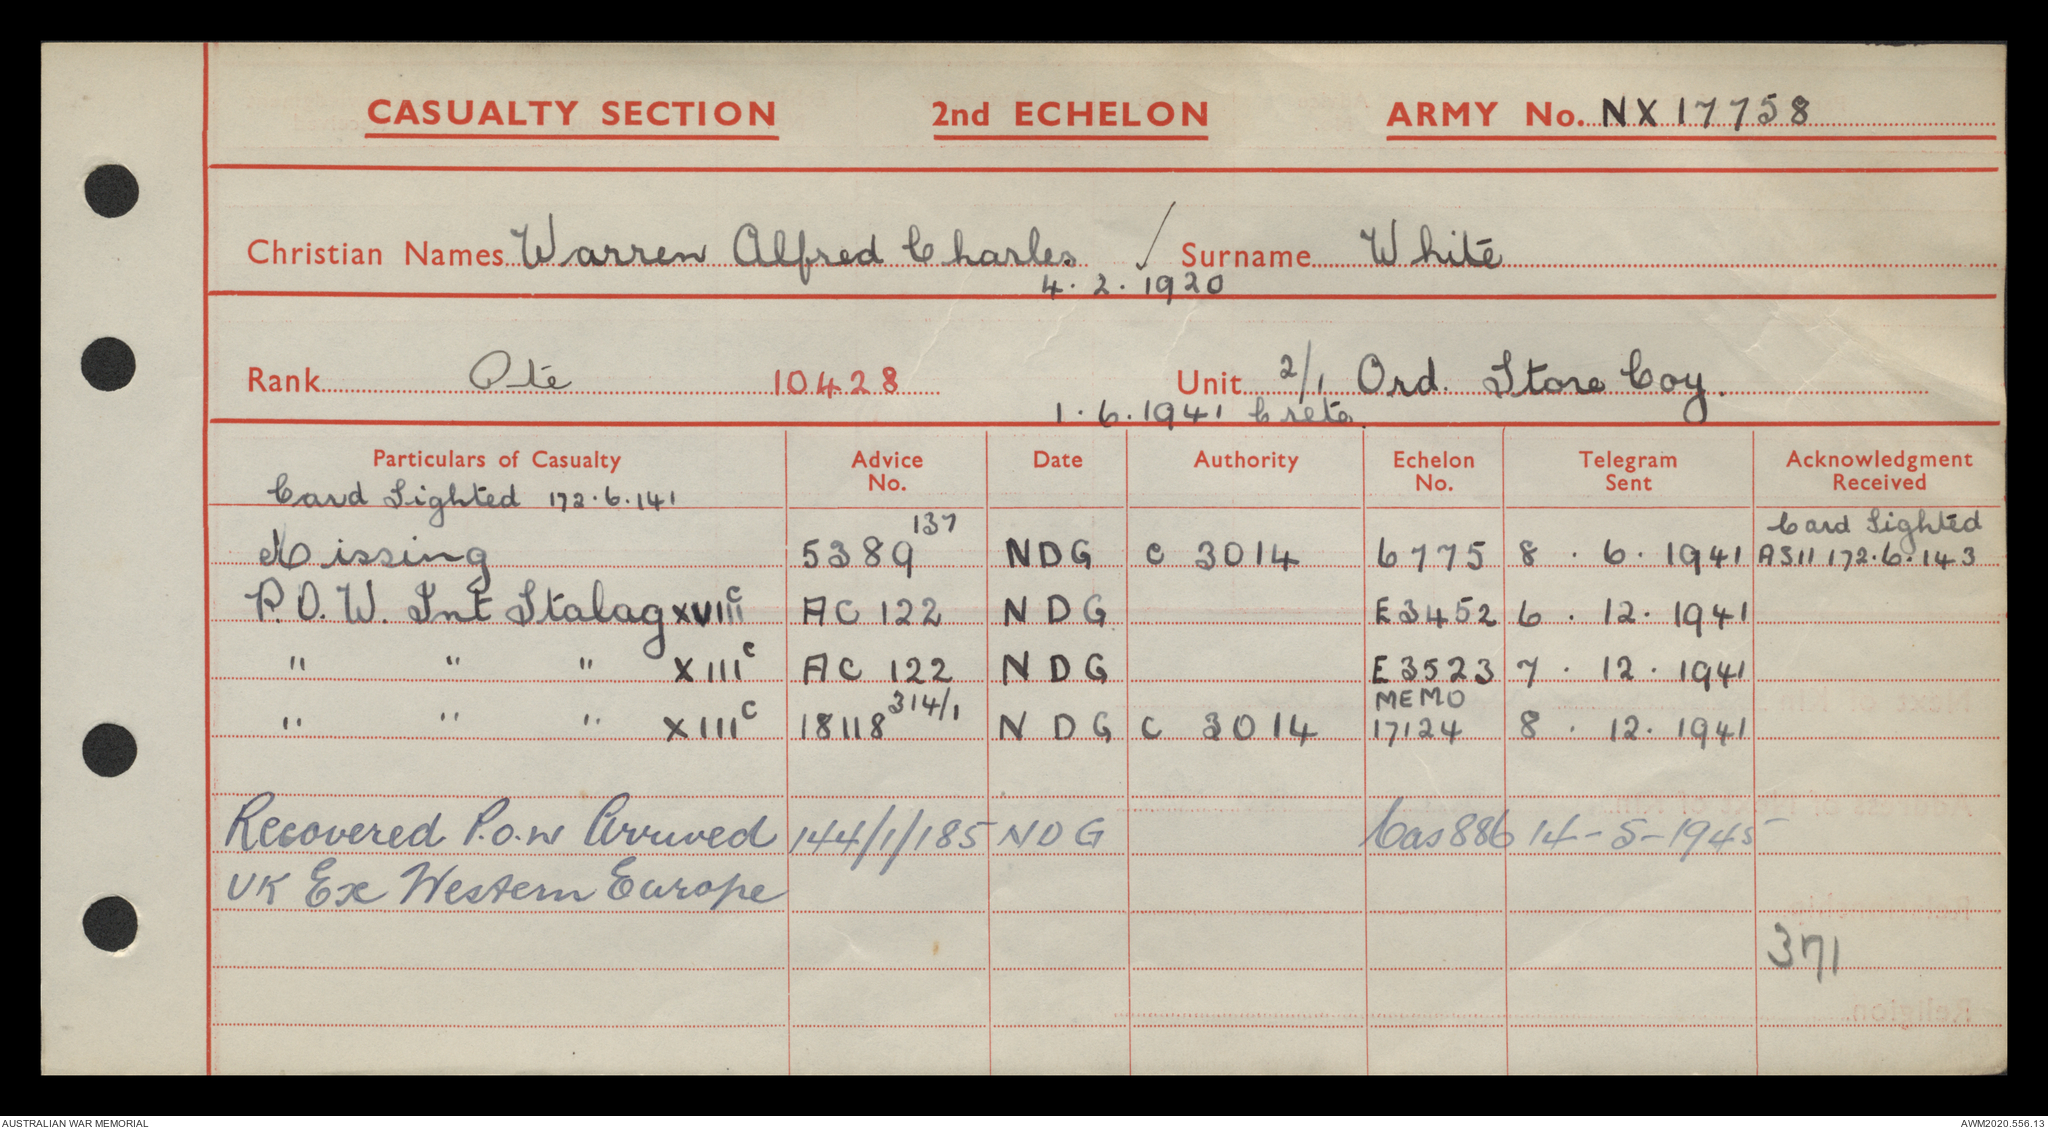 CASUALTY SECTION 2nd ECHELON ARMY No. NX17758
Christian Names Warren Alfred Charles Surname White
4.2.1920
Rank Pte 10428 Unit 2/1 Ord. Store Coy.
1.6.1941 Crete
Particulars of Casualty Advice No. Date Authority Echelon No. Telegram Sent Acknowledgment Received
Card Sighted 172.6.141
137 Card Sighted
Missing 5389 NDG C 3014 6775 8.6.1941 AS11 172.6.143
P.O.W. Int Stalag XVIIIc AC 122 NDG E3452 6.12.1941
" " " XIIIc AC 122 NDG E3523 7.12.1941
314/1 MEMO
" " " XIIIc 18118 NDG C 3014 17124 8.12.1941
Recovered P.O.W Arrived 144/1/185 NDG Cas886 14-5-1945
UK Ex Western Europe
371
AUSTRALIAN WAR MEMORIAL AWM2020.556.13